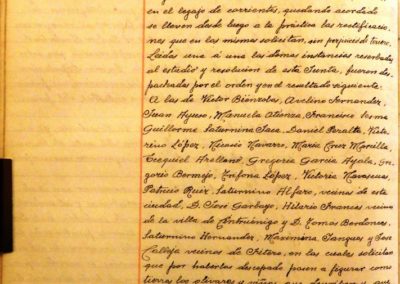 en el legajo de corrientes, quedando acordado
se lleven desde luego a la práctica las rectificacio
nes que en las mismas solicitan, sin perjuicio de tercero.
Leidas una á una las demas instancias reservadas
al estudio y resolucion de esta Junta, fueron des
pachadas por el orden y con el resultado siguiente:
A las de Victor Bienzobas, Avelino Fernandez,
Juan Ayuso, Manuela Atienza, Francisco
Guillerma Saturnina Jaca, Daniel Peralta, Victo
rino López, Nicasio Navarro, Maria Cruz Morilla
Ecequiel Arellano, Gregoria Garcia Ayala, Gre
gorio Bermejo, Trifona López, Victoria Navascues,
Patricio Ruiz, Saturnino Alfaro, vecinos de esta
ciudad, D. José Garbayo, Hilario Frances vecino
de la villa de Cintruénigo y D. Tomas Bordonces,
Saturnino Hernandez, Maximina Jangues y José
Calleja vecinos de Fitero, en las cuales solicitan
que por haberlas descepado pasen a figurar como
tierra los olivares y viñas que